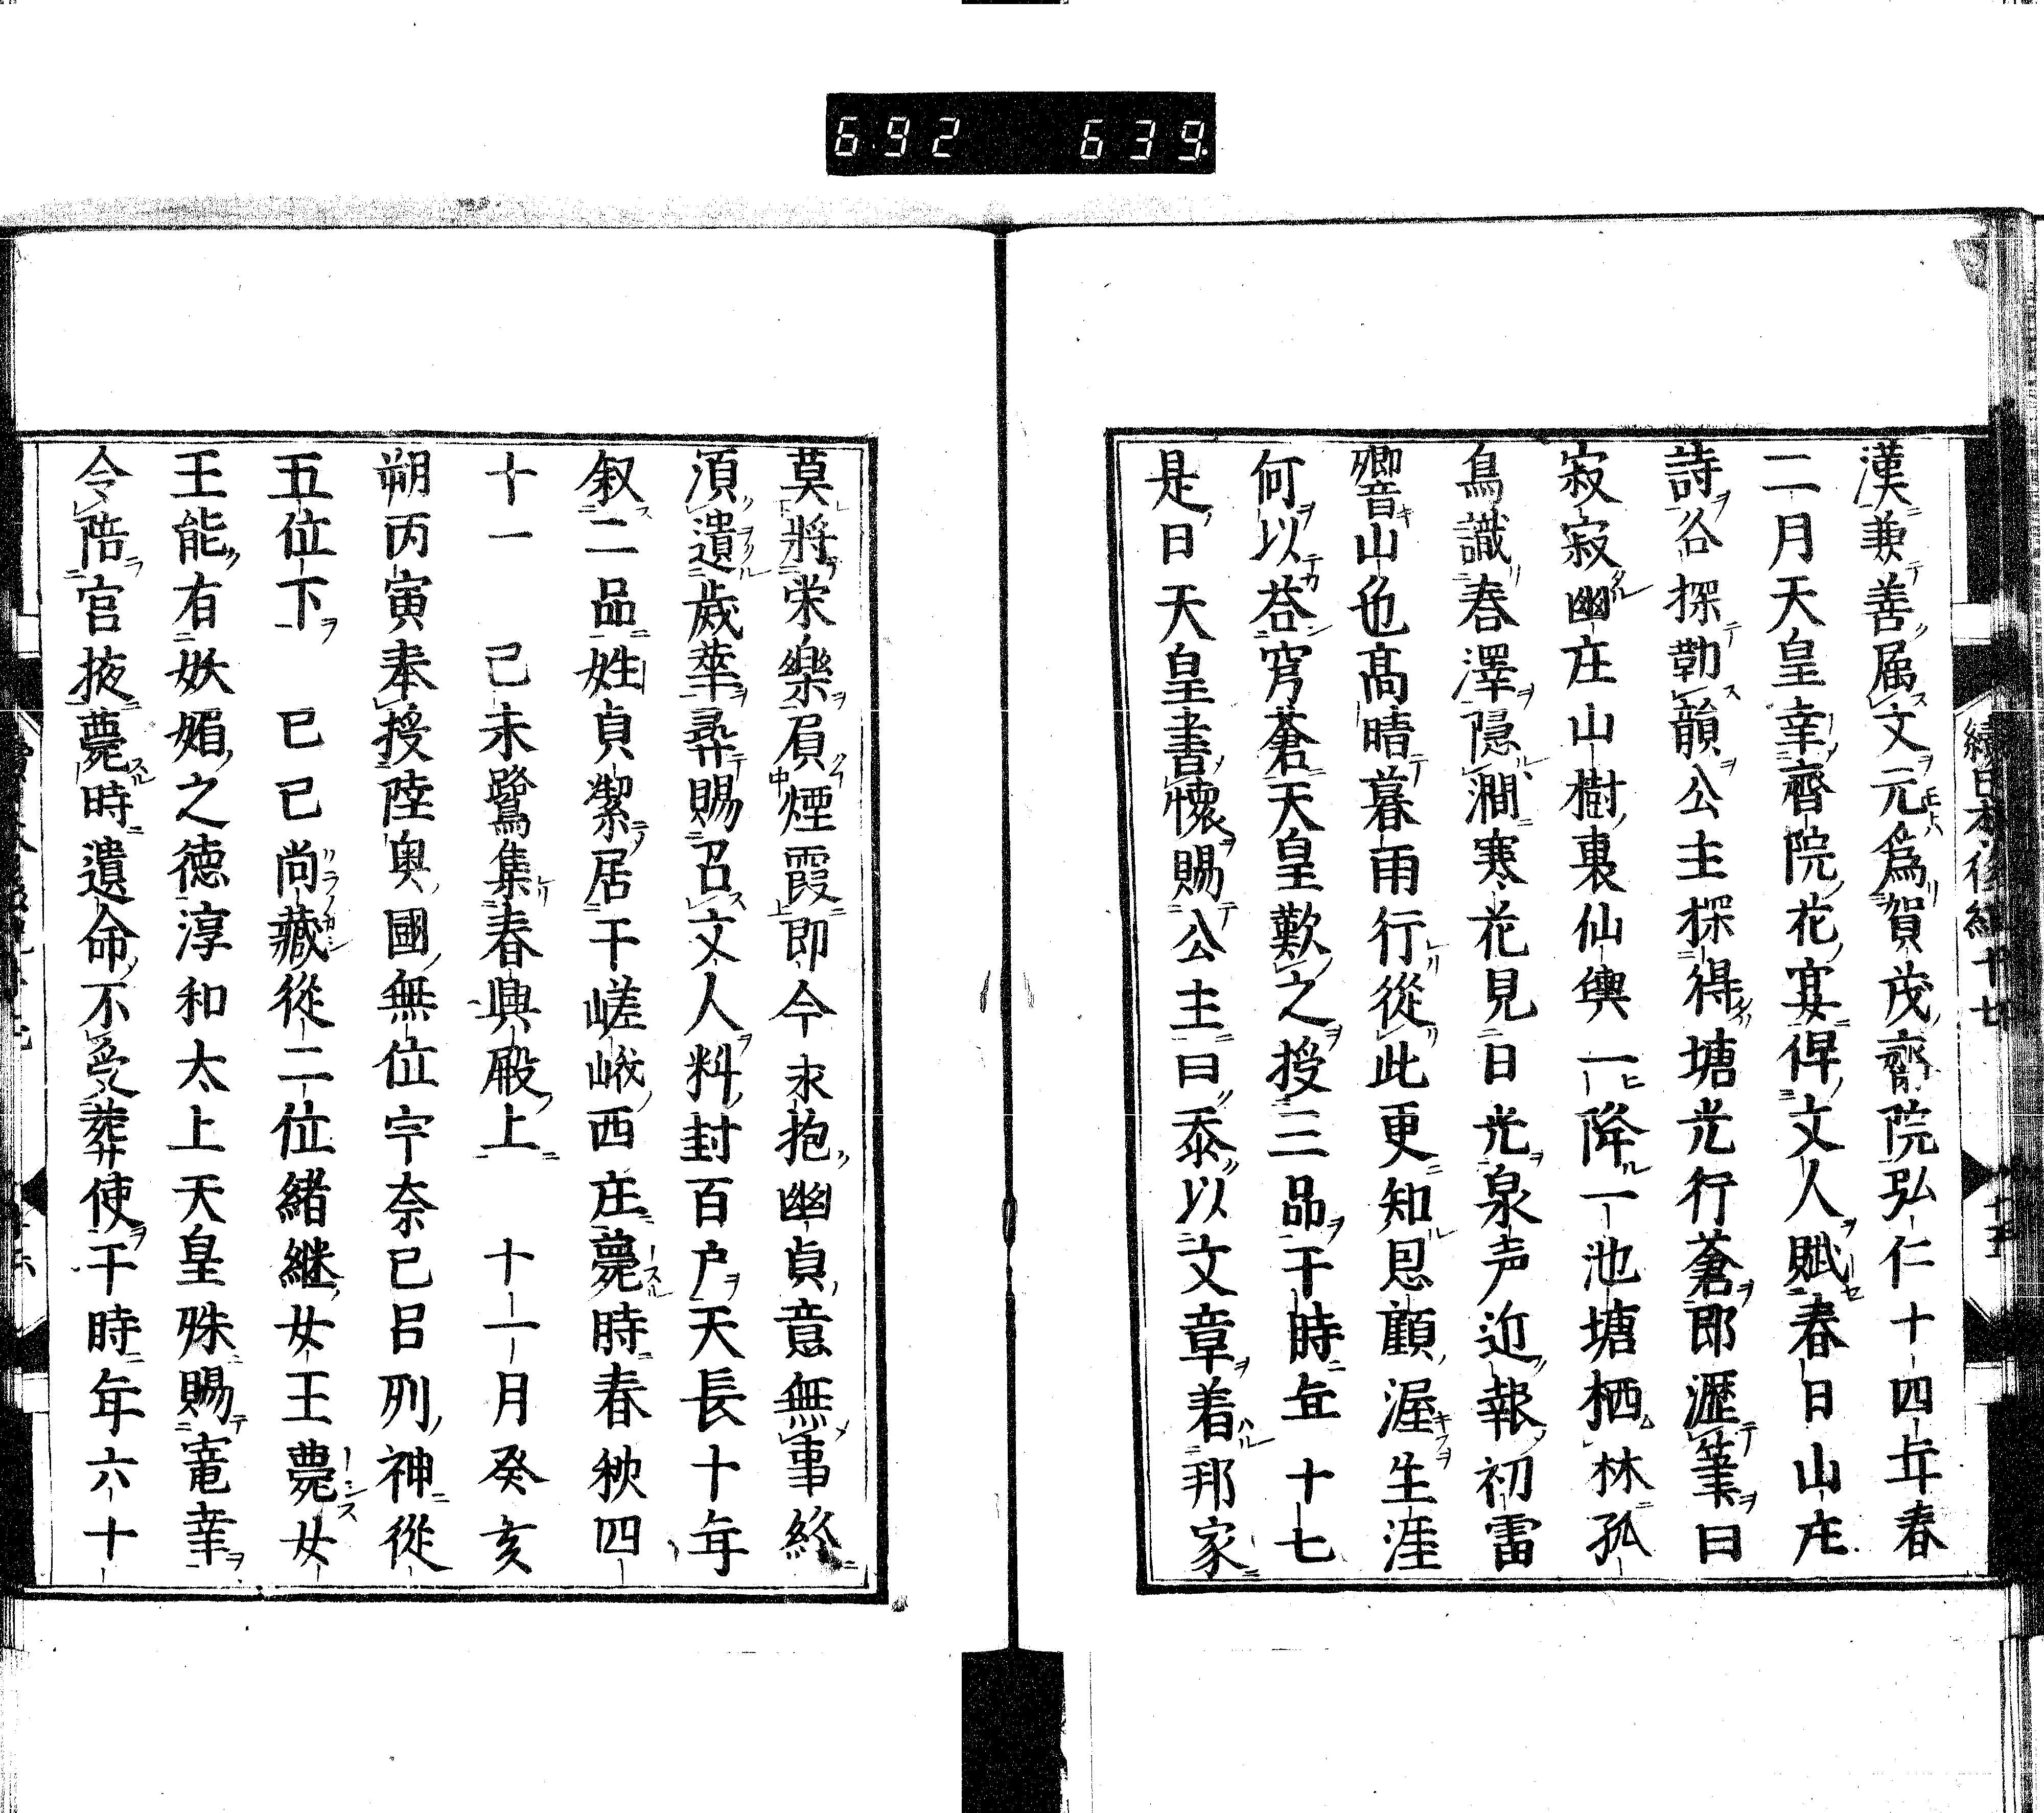 692 639
漢兼善属文元爲賀茂齋院弘仁十四年春
二月天皇幸齊院花宴俾文人賦春日山庄
詩各探勒韻公主探得塘光行蒼即瀝筆曰
寂寂幽庄山樹裏仙輿一降一池塘栖林孤
鳥識春澤隠澗寒花見日光泉声近報初雷
響山色高晴暮雨行從此更知恩顧渥生涯
何以荅穹蒼天皇歎之授三品于時年十七
是日天皇書懐賜公主曰忝以文章着邦家
莫將栄樂負煙霞即今永抱幽貞意無事終
湏遣歳華尋賜召文人料封百户天長十年
叙二品姓貞潔居于嵯峨西庄薨時春秋四
十一 己未鷺集春興殿上 十一月癸亥
朔丙寅奉授陸奥國無位宇奈己呂別神從
五位下 己巳尚藏從二位緒継女王薨女
王能有妖媚之徳淳和太上天皇殊賜寵幸
令陪官掖薨時遺命不受葬使于時年六十
續日本後紀十七